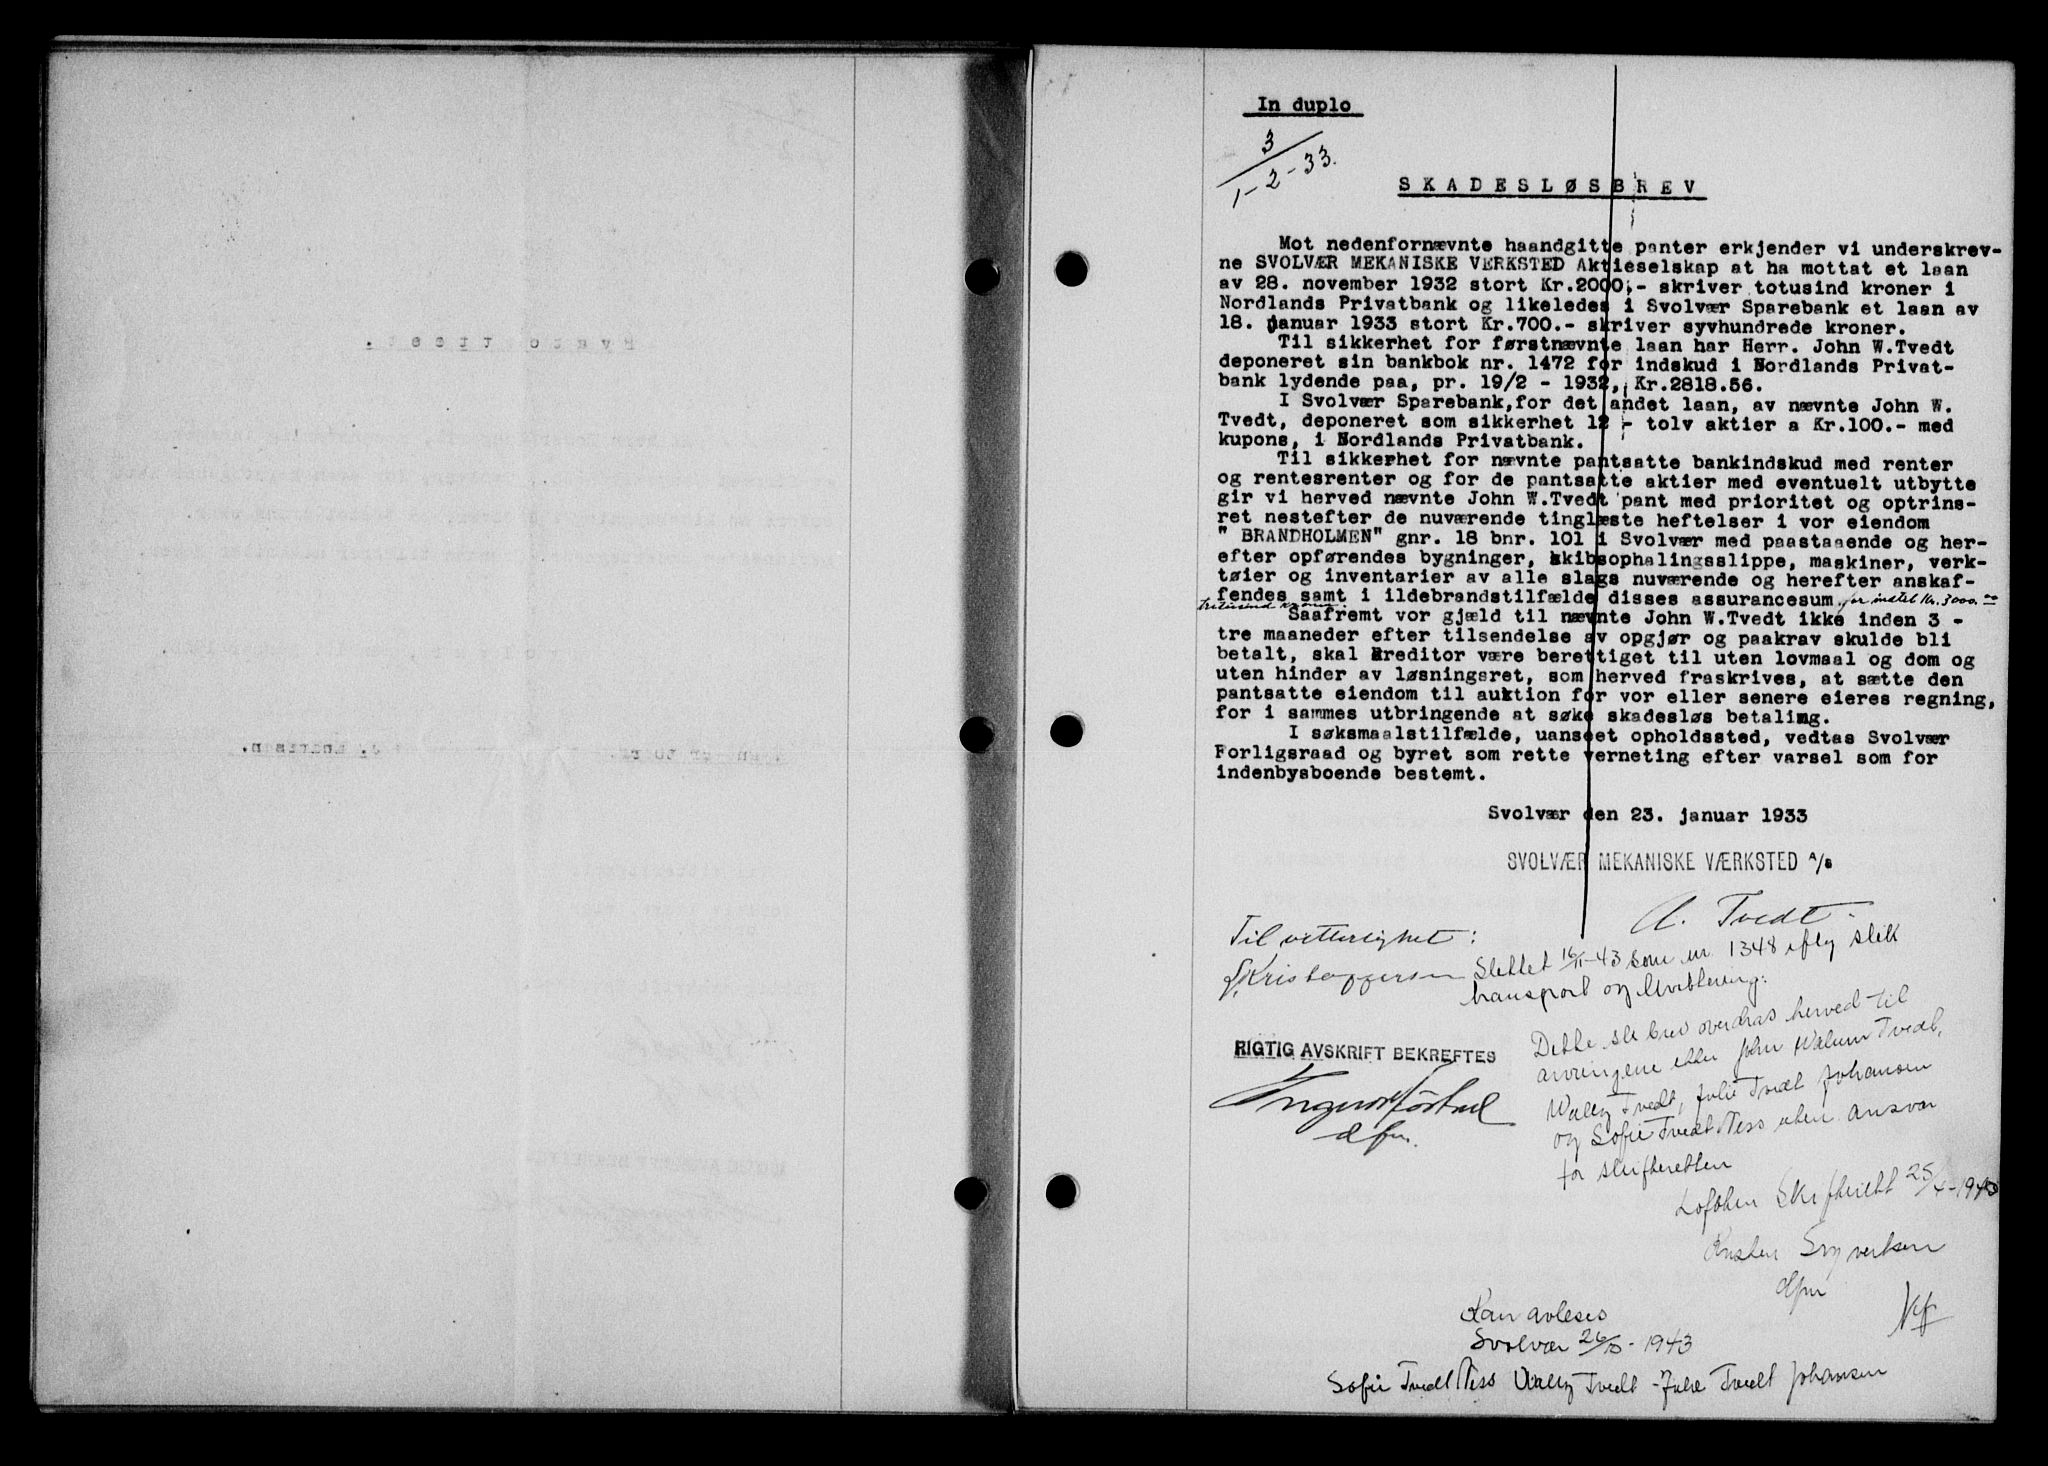 In duplo
3
1-2-33.
SKADESLØSBREV
Mot nedenfornævnte haandgitte panter erkjender vi underskrev-
ne SVOLVÆR MEKANISKE VERKSTED Aktieselskap at ha mottat et laan
av 28. november 1932 stort Kr.2000,- skriver totusind kroner i
Nordlands Privatbank og likeledes i Svolvær Sparebank et laan av
18. januar 1933 stort Kr.700.- skriver syvhundrede kroner.
Til sikkerhet for førstnævnte laan har Herr. John W.Tvedt
deponeret sin bankbok nr. 1472 for indskud i Nordlands Privat-
bank lydende paa, pr. 19/2 - 1932, Kr.2818.56.
I Svolvær Sparebank,for det andet laan, av nævnte John W.
Tvedt, deponeret som sikkerhet 12 - tolv aktier a Kr.100.- med
kupons, i Nordlands Privatbank.
Til sikkerhet for nævnte pantsatte bankindskud med renter
og rentesrenter og for de pantsatte aktier med eventuelt utbytte
gir vi herved nævnte John W.Tvedt pant med prioritet og optrins-
ret nestefter de nuværende tinglæste heftelser i vor eiendom
" BRANDHOLMEN" gnr. 18 bnr. 101 i Svolvær med paastaaende og her-
efter opførendes bygninger, skibsophalingsslippe, maskiner, verk-
tøier og inventarier av alle slags nuværende og herefter anskaf-
fendes samt i ildebrandstilfælde disses assurancesum. for indtel Kr. 3000.00
tretusind kroner.
Saafremt vor gjæld til nævnte John W.Tvedt ikke inden 3 -
tre maaneder efter tilsendelse av opgjør og paakrav skulde bli
betalt, skal kreditor være berettiget til uten lovmaal og dom og
uten hinder av løsningsret, som herved fraskrives, at sætte den
pantsatte eiendom til auktion for vor eller senere eieres regning,
for i sammes utbringende at søke skadesløs betaling.
I søksmaalstilfælde, uanseet opholdssted, vedtas Svolvær
Forligsraad og byret som rette verneting efter varsel som for
indenbysboende bestemt.
Svolvær den 23. januar 1933
SVOLVÆR MEKANISKE VÆRKSTED A/S
A. Tvedt.
Til vitterlighet:
Slettet 16/11-43 som nr. 1348 iflg slik
transport og kvittering.
RIGTIG AVSKRIFT BEKREFTES
dfm.
Dette sk brev overdras herved til
arvingene etter John Walum Tvedt,
Wally Tvedt, Julie Tvedt Johansen
og Sofie Tvedt Ness uten ansvar
for skifteretten
Lofoten Skifterett 25/4-1943
Syvertsen
dfm
Kan avleses
Svolvær 26/10-1943
Sofie Tvedt Ness Wally Tvedt - Julie Tvedt Johansen